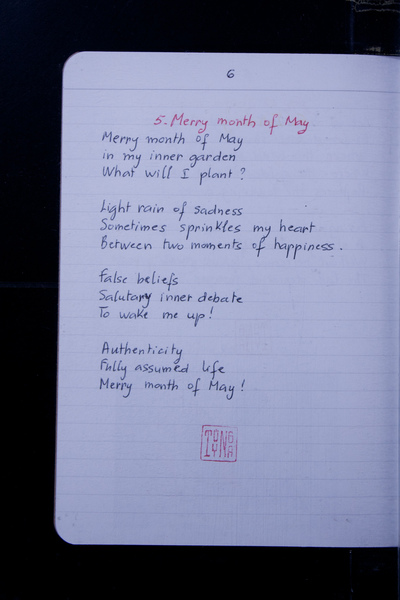 6
5-Merry month of May
Merry month of May
in my inner garden
What will I plant ?
Light rain of sadness
Sometimes sprinkles my heart
Between two moments of happiness.
False beliefs
Salutary inner debate
To wake me up!
Authenticity
Fully assumed life
Merry month of May!